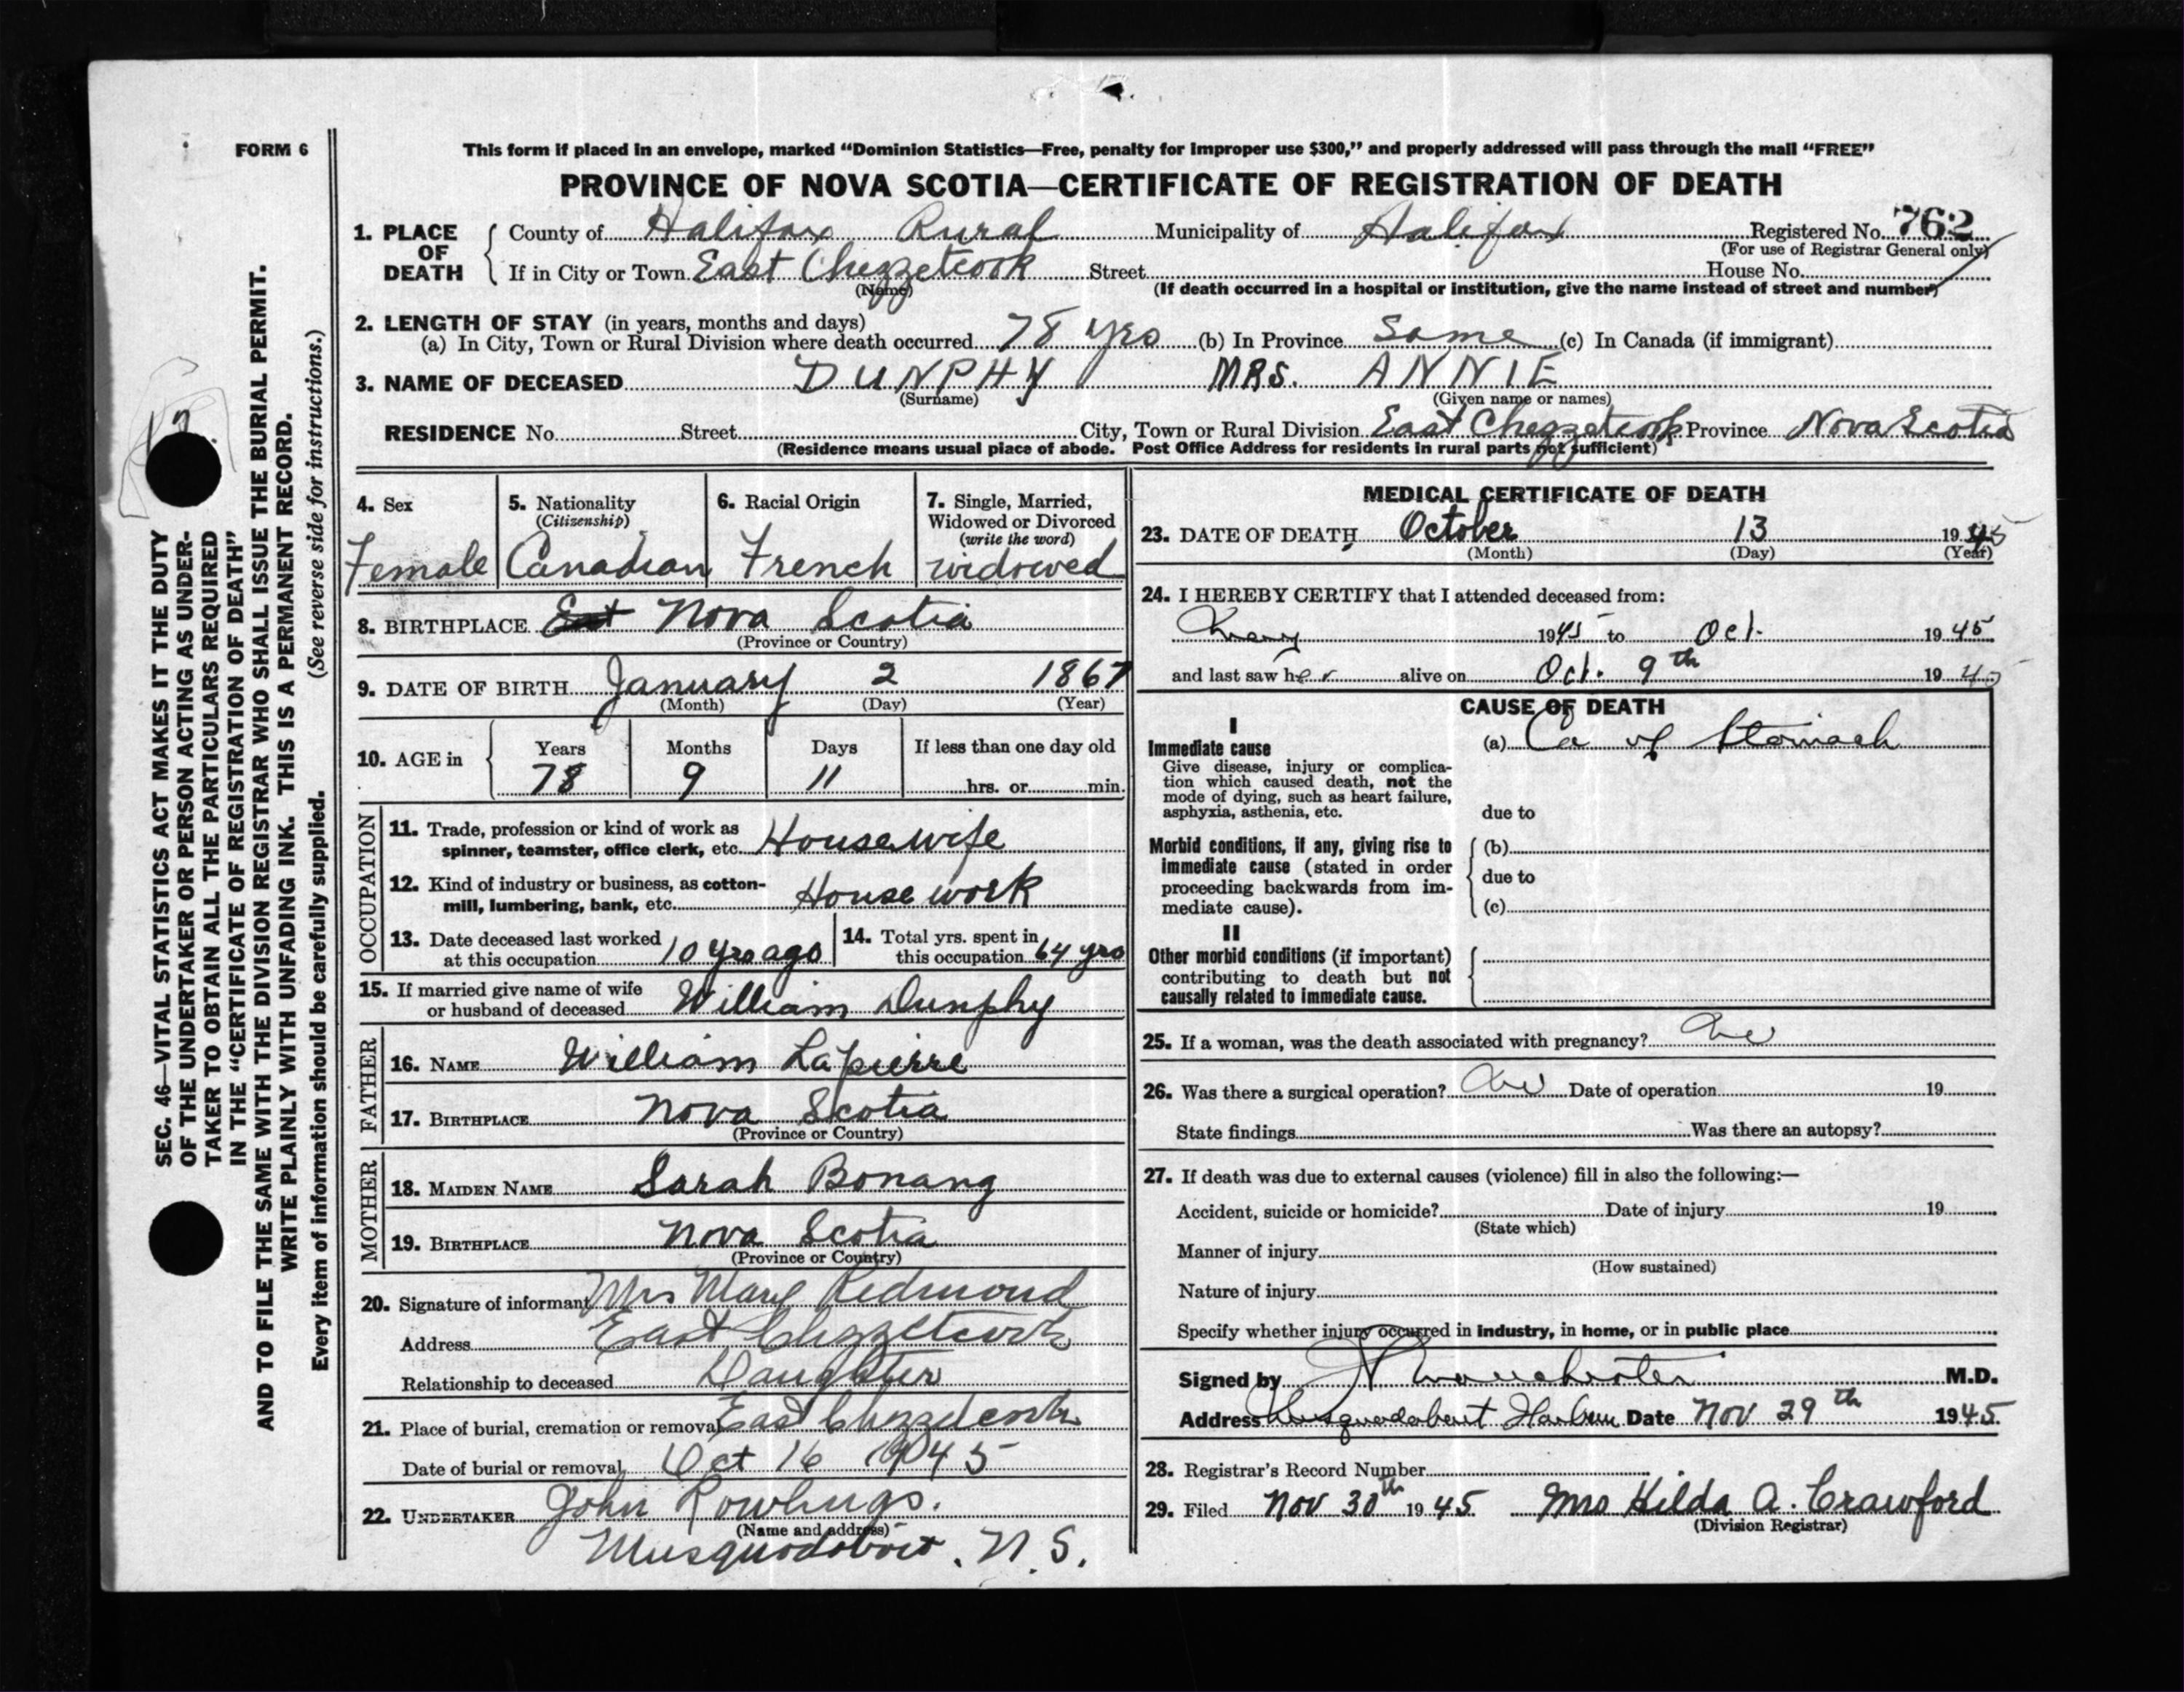 FORM 6
This form if placed in an envelope, marked “Dominion Statistics—Free, penalty for improper use $300,” and properly addressed will pass through the mail “FREE”
PROVINCE OF NOVA SCOTIA—CERTIFICATE OF REGISTRATION OF DEATH
1. PLACE OF DEATH County of Halifax Rural Municipality of Halifax Registered No. 762
(For use of Registrar General only)
If in City or Town East Chezzetcook Street House No.
(Name) (If death occurred in a hospital or institution, give the name instead of street and number)
2. LENGTH OF STAY (in years, months and days)
(a) In City, Town or Rural Division where death occurred 78 yrs (b) In Province Same (c) In Canada (if immigrant)
3. NAME OF DECEASED DUNPHY MRS. ANNIE
(Surname) (Given name or names)
RESIDENCE No. Street City, Town or Rural Division East Chezzetcook Province Nova Scotia
(Residence means usual place of abode. Post Office Address for residents in rural parts not sufficient)
4. Sex
Female
5. Nationality
(Citizenship)
Canadian
6. Racial Origin
French
7. Single, Married,
Widowed or Divorced
(write the word)
widowed
8. BIRTHPLACE East Nova Scotia
(Province or Country)
9. DATE OF BIRTH January 2 1867
(Month) (Day) (Year)
10. AGE in Years Months Days If less than one day old
78 9 11 hrs. or min.
OCCUPATION
11. Trade, profession or kind of work as
spinner, teamster, office clerk, etc. Housewife
12. Kind of industry or business, as cotton-
mill, lumbering, bank, etc. House work
13. Date deceased last worked
at this occupation 10 yrs ago
14. Total yrs. spent in
this occupation 64 yrs
15. If married give name of wife
or husband of deceased William Dunphy
FATHER
16. NAME William Lapierre
17. BIRTHPLACE Nova Scotia
(Province or Country)
MOTHER
18. MAIDEN NAME Sarah Bonang
19. BIRTHPLACE Nova Scotia
(Province or Country)
20. Signature of informant Mrs Mary Redmond
Address East Chezzetcook
Relationship to deceased Daughter
21. Place of burial, cremation or removal East Chezzetcook
Date of burial or removal Oct 16 1945
22. UNDERTAKER John Rowlings.
(Name and address)
Musquodoboit. N.S.
MEDICAL CERTIFICATE OF DEATH
23. DATE OF DEATH October 13 1945
(Month) (Day) (Year)
24. I HEREBY CERTIFY that I attended deceased from:
1945 to Oct. 1945
and last saw her alive on Oct. 9th 1945
CAUSE OF DEATH
I
Immediate cause
Give disease, injury or complica-
tion which caused death, not the
mode of dying, such as heart failure,
asphyxia, asthenia, etc.
(a) Ca of Stomach
due to
Morbid conditions, if any, giving rise to
immediate cause (stated in order
proceeding backwards from im-
mediate cause).
(b)
due to
(c)
II
Other morbid conditions (if important)
contributing to death but not
causally related to immediate cause.
25. If a woman, was the death associated with pregnancy? no
26. Was there a surgical operation? no Date of operation 19
State findings Was there an autopsy?
27. If death was due to external causes (violence) fill in also the following:—
Accident, suicide or homicide? Date of injury 19
(State which)
Manner of injury
(How sustained)
Nature of injury
Specify whether injury occurred in industry, in home, or in public place
Signed by M.D.
Address Musquodoboit Harbour Date Nov 29th 1945
28. Registrar's Record Number
29. Filed Nov 30th 1945. Mrs Hilda A. Crawford
(Division Registrar)
SEC. 46—VITAL STATISTICS ACT MAKES IT THE DUTY
OF THE UNDERTAKER OR PERSON ACTING AS UNDER-
TAKER TO OBTAIN ALL THE PARTICULARS REQUIRED
IN THE “CERTIFICATE OF REGISTRATION OF DEATH”
AND TO FILE THE SAME WITH THE DIVISION REGISTRAR WHO SHALL ISSUE THE BURIAL PERMIT.
WRITE PLAINLY WITH UNFADING INK. THIS IS A PERMANENT RECORD.
Every item of information should be carefully supplied. (See reverse side for instructions.)